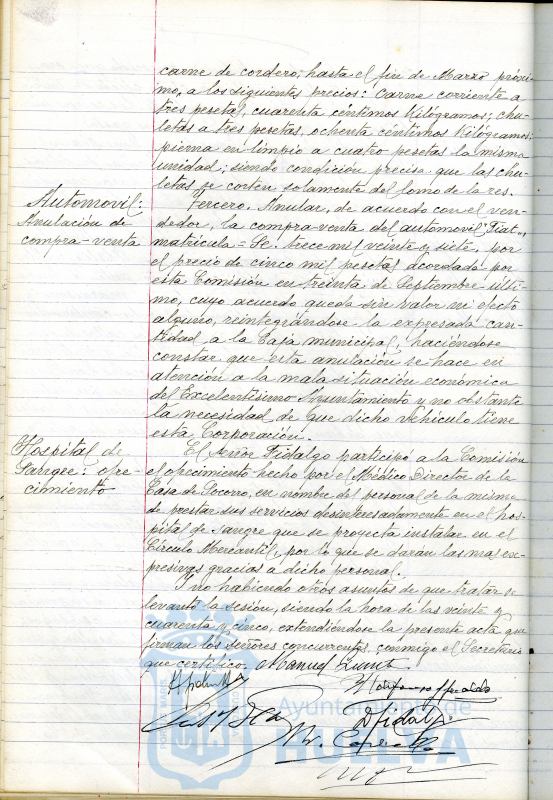 carne de cordero, hasta el fin de Marzo próxi-
mo, a los siguientes precios: Carne corriente a
tres pesetas, cuarenta céntimos Kilógramos; chu-
letas a tres pesetas, ochenta céntimos Kilógramos;
pierna en limpio a cuatro pesetas la misma
unidad; siendo condición precisa que las chu-
letas se corten solamente del lomo de la res.
Automovil:
Anulación de
compra-venta
Tercero. Anular, de acuerdo con el ven-
dedor, la compra-venta del automovil "Fiat",
matrícula=Se. trece mil veinte y siete, por
el precio de cinco mil pesetas acordada por
esta Comisión en treinta de Septiembre últi-
mo, cuyo acuerdo queda sin valor ni efecto
alguno, reintegrándose la expresada can-
tidad a la Caja municipal; haciéndose
constar que esta anulación se hace en
atención a la mala situación económica
del Excelentísimo Ayuntamiento y no obstante
la necesidad de que dicho vehículo tiene
esta Corporación.
Hospital de
Sangre: ofre-
cimiento
El Señor Fidalgo participó a la Comisión
el ofrecimiento hecho por el Médico Director de la
Casa de Socorro, en nombre del personal de la misma
de prestar sus servicios desinteresadamente en el hos-
pital de sangre que se proyecta instalar en el
Círculo Mercantil, por lo que se darán las mas ex-
presivas gracias a dicho personal.
Y no habiendo otros asuntos de que tratar se
levantó la sesión, siendo la hora de las veinte y
cuarenta y cinco, extendiéndose la presente acta que
firman los señores concurrentes, conmigo el Secretario
que certifico. Manuel
D Fidalgo
Ayuntamiento de
HUELVA